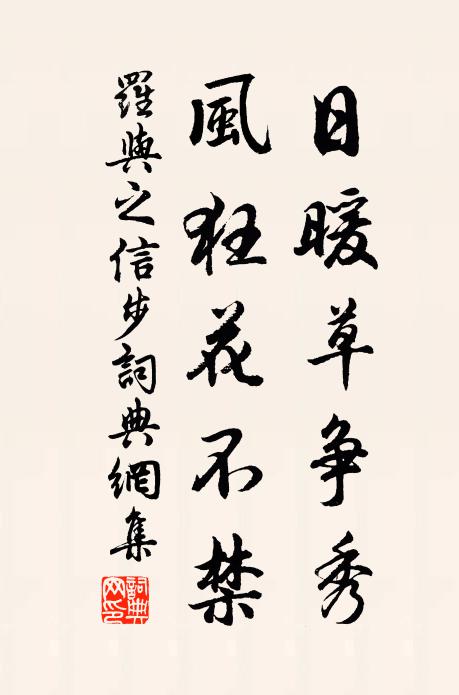 日暖草争秀
風狂花不禁
羅與之信步詞典網集
詞典網印